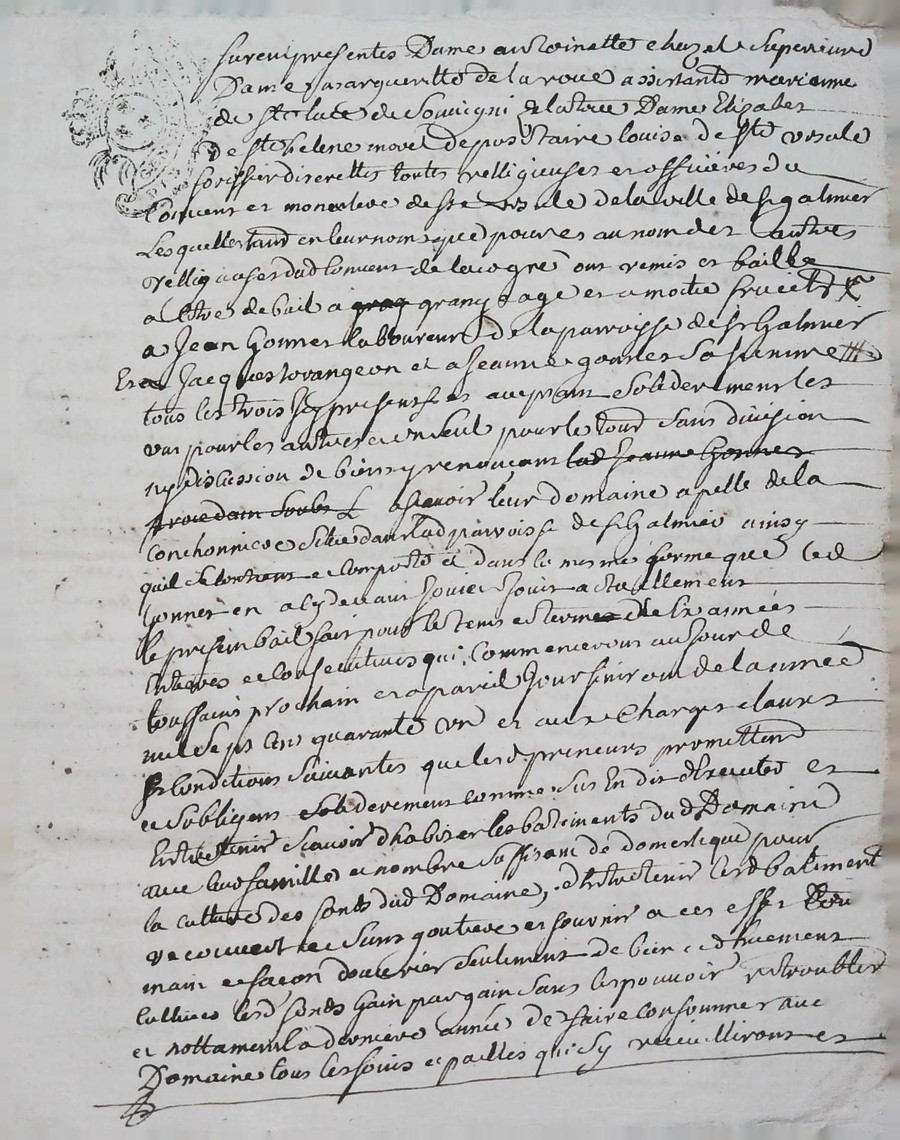 furent presentes Dame antoinette chazal Superieure
Dame margueritte de la roue assistante marianne
de Ste luce de Souvigni zelatrice Dame Elizabet
de Ste helene movel depositaire louise de Ste ursule
discrettes toutes relligieuses et officieres du
Couvent et monastere de Ste ursule de la ville de St galmier
Lesquelles tant en leur noms que pour et au nom des autres
relligieuses dud Convent de lacogré ont remis et baillé
a titre de bail a grangeage et a moitié fruict
a Jean Gonnet laboureur de la parroisse de St Galmier
Et a Jacques tovangeon et a Jeanne gonnet Sa femme
tous les trois icy presents et acceptant Soliderement les
uns pour les autres et un Seul pour le tout Sans division
ny discution de biens y renonçant lad Jeanne Gonnet
a Scavoir leur domaine apellé de la
Conchonniere Situé dans lad parroisse de St Galmier ainsy
quil Se Contient et Comporte et dans la meme forme que led
Gonnet en a cy devant Joui et Jouit actuellement
le present bail fait pour le tems et terme de Six années
Entieres et Consecutives qui Commenceront au Jour de
toussaint prochain et a pareil Jour finiront de lannée
mil Sept cent quarante un et aux Charges clauses
Et Conditions Suivantes que lesd preneurs promettent
et Sobligent Soliderement comme Sus En dit dExecuter et
Entretenir Scavoir dhabiter les batiments dud Domaine
avec leur famille et nombre Suffisant de domestique pour
la culture des fonds dud Domaine, dEntretenir lesd batiment
recouvert et Sans goutiere et fournir a cet effet
main et façon douvrier Seulement de bien et dhuement
Cultiver lesd fonds gain par gain Sans les pouvoir retroubler
et nottament la derniere année de faire consommer aud
Domaine tous les foins et pailles qui Sy recuilliront et